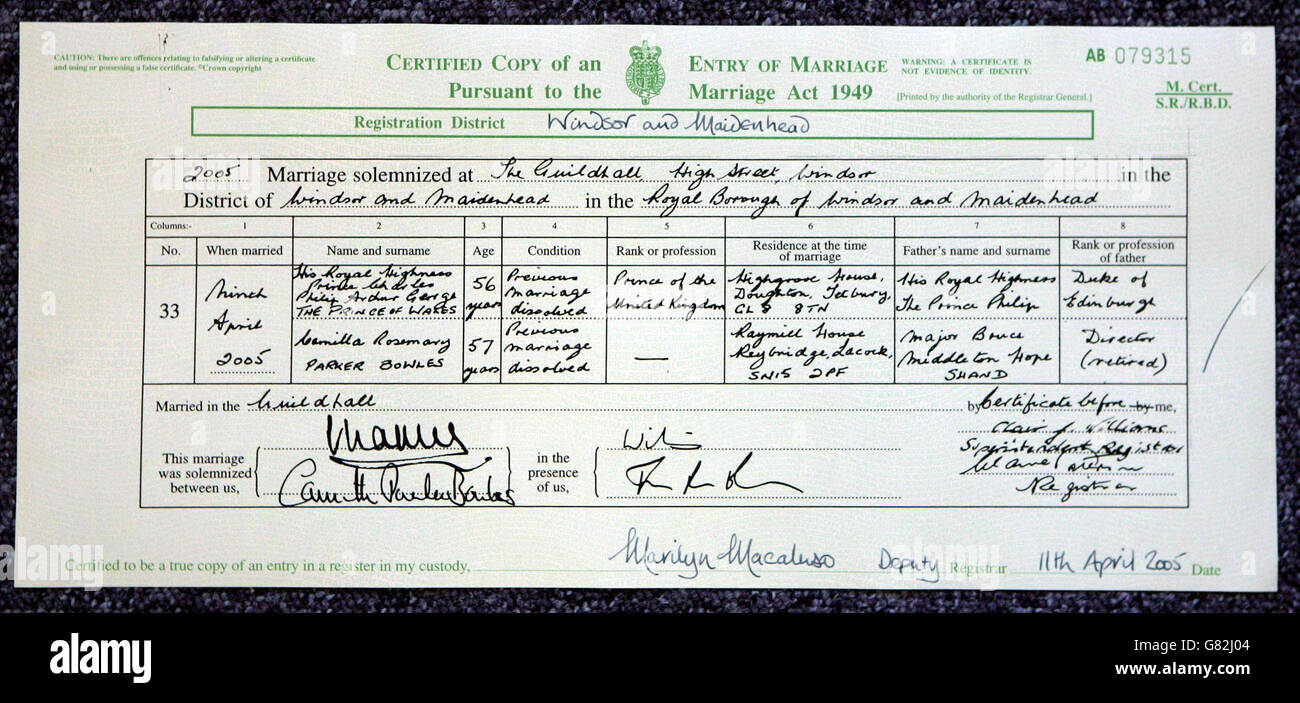 CAUTION: There are offences relating to falsifying or altering a certificate
and using or possessing a false certificate. ©Crown copyright
CERTIFIED COPY of an ENTRY OF MARRIAGE
Pursuant to the Marriage Act 1949
WARNING: A CERTIFICATE IS
NOT EVIDENCE OF IDENTITY.
[Printed by the authority of the Registrar General.]
AB 079315
M. Cert.
S.R./R.B.D.
Registration District Windsor and Maidenhead
2005 Marriage solemnized at The Guildhall, High Street, Windsor in the
District of Windsor and Maidenhead in the Royal Borough of Windsor and Maidenhead
Columns:- 1 2 3 4 5 6 7 8
No.
When married
Name and surname
Age
Condition
Rank or profession
Residence at the time
of marriage
Father's name and surname
Rank or profession
of father
33
Ninth
April
2005
His Royal Highness
Prince Charles
Philip Arthur George
THE PRINCE OF WALES
56
years
Previous
marriage
dissolved
Prince of the
United Kingdom
Highgrove House,
Doughton, Tetbury,
GL8 8TN
His Royal Highness
The Prince Philip
Duke of
Edinburgh
Camilla Rosemary
PARKER BOWLES
57
years
Previous
marriage
dissolved
—
Raymill House
Reybridge, Lacock,
SN15 2PF
Major Bruce
Middleton Hope
SHAND
Director
(retired)
Married in the Guildhall by Certificate before by me,
This marriage
was solemnized
between us,
Charles
Camilla Parker Bowles
in the
presence
of us,
Clair J. Williams
Superintendent Registrar
Registrar
Certified to be a true copy of an entry in a register in my custody, Marilyn Macaluso Deputy Registrar 11th April 2005 Date
alamy
Image ID: G82J04
www.alamy.com